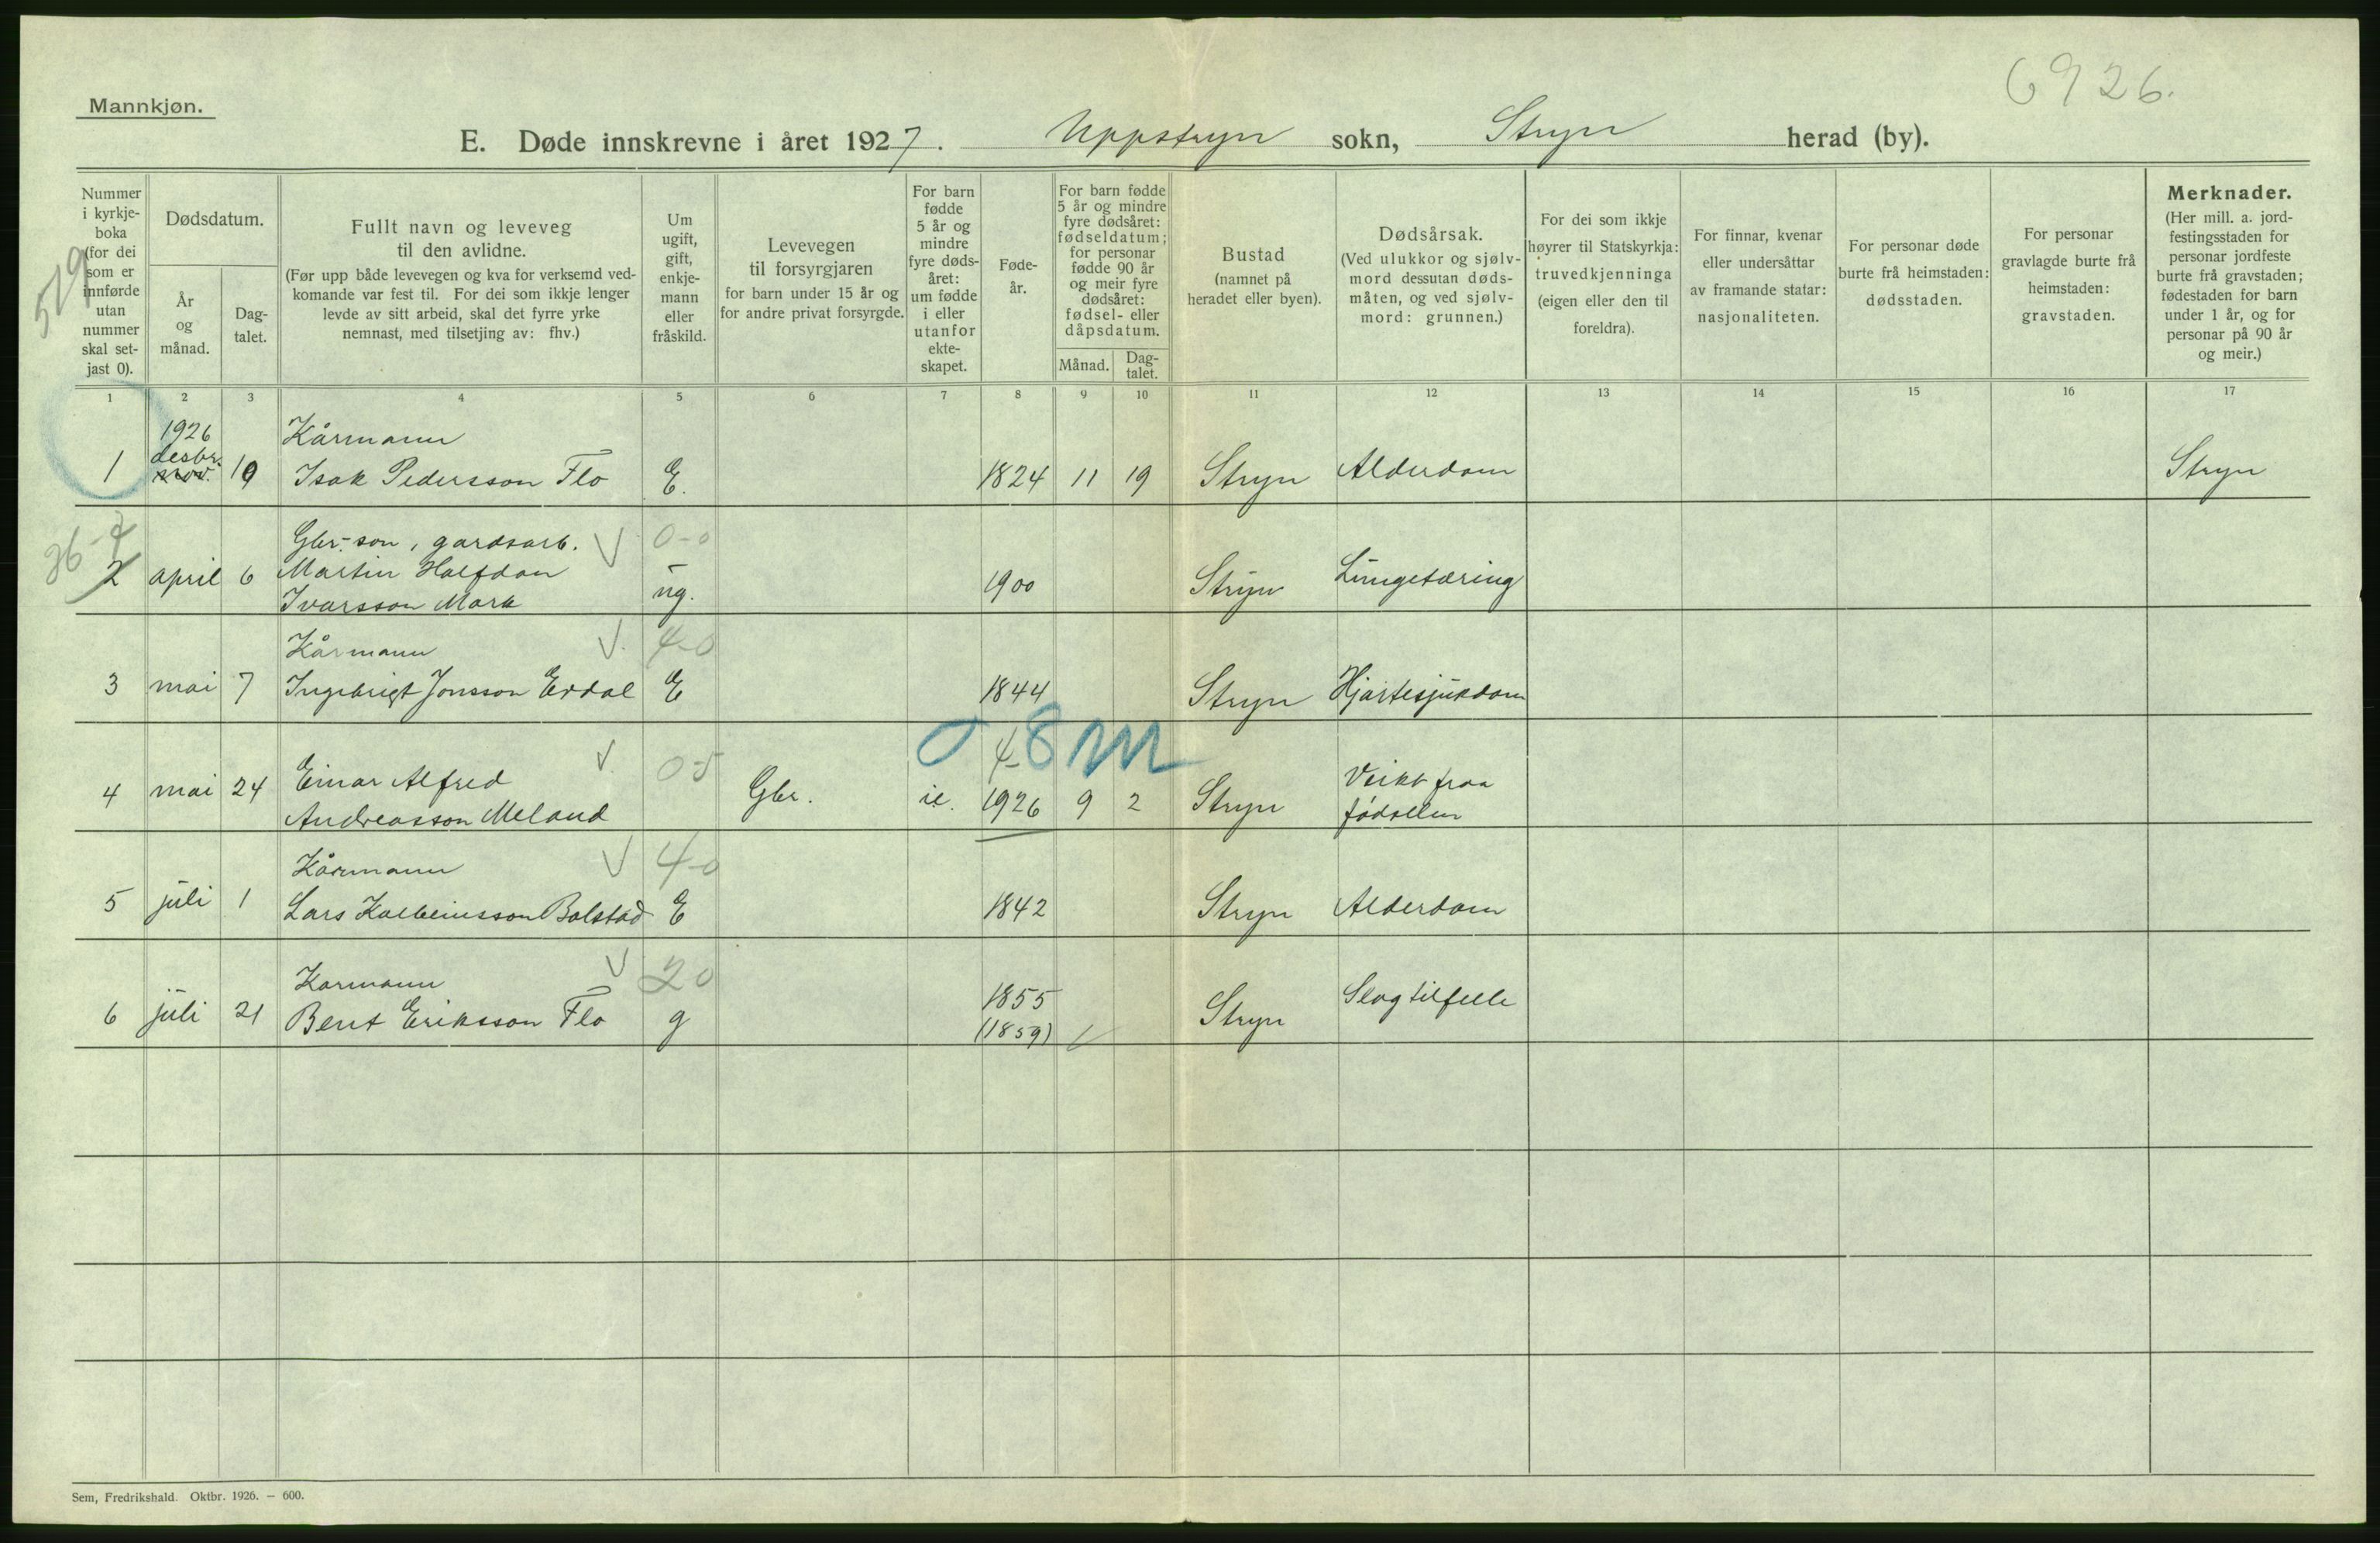 6926.
Mannkjøn.
E. Døde innskrevne i året 1927. Uppstryn sokn, Stryn herad (by).
519
Nummer i kyrkje-boka (for dei som er innførde utan nummer skal set-jast 0).
Dødsdatum.
År og månad.
Dag-talet.
Fullt navn og leveveg til den avlidne.
(Før upp både levevegen og kva for verksemd ved-komande var fest til. For dei som ikkje lenger levde av sitt arbeid, skal det fyrre yrke nemnast, med tilsetjing av: fhv.)
Um ugift, gift, enkje-mann eller fråskild.
Levevegen til forsyrgjaren for barn under 15 år og for andre privat forsyrgde.
For barn fødde 5 år og mindre fyre døds-året: um fødde i eller utanfor ekte-skapet.
Føde-år.
For barn fødde 5 år og mindre fyre dødsåret: fødseldatum; for personar fødde 90 år og meir fyre dødsåret: fødsel- eller dåpsdatum.
Månad.
Dag-talet.
Bustad (namnet på heradet eller byen).
Dødsårsak.
(Ved ulukkor og sjølv-mord dessutan døds-måten, og ved sjølv-mord: grunnen.)
For dei som ikkje høyrer til Statskyrkja: truvedkjenninga (eigen eller den til foreldra).
For finnar, kvenar eller undersåttar av framande statar: nasjonaliteten.
For personar døde burte frå heimstaden: dødsstaden.
For personar gravlagde burte frå heimstaden: gravstaden.
Merknader.
(Her mill. a. jord-festingsstaden for personar jordfeste burte frå gravstaden; fødestaden for barn under 1 år, og for personar på 90 år og meir.)
1 2 3 4 5 6 7 8 9 10 11 12 13 14 15 16 17
1926 Kårmann
desbr.
1 nov. 19 Isak Pedersson Flo E. 1824 11 19 Stryn Alderdom Stryn
36-4 Gbr.-son, gardsarb. V 0-0
2 april 6 Martin Halfdan ug. 1900 Stryn Lungetæring
Ivarsson Mark
Kårmann V. 4-0
3 mai 7 Ingebrigt Jonsson Erdal E 1844 Stryn Hjartesjukdom
0 4-8 m
Einar Alfred V. 0-5 Veikt fraa
4 mai 24 Andreasson Meland Gbr. i.e. 1926 9 2 Stryn fødsellen
Kårmann V 4-0
5 juli 1 Lars Kolbeinsson Bolstad E 1842 Stryn Alderdom
Karmann V 20
6 juli 21 Bent Eriksson Flo g 1855 Stryn Slagtilfelle
(1859)
Sem, Fredrikshald. Oktbr. 1926. — 600.